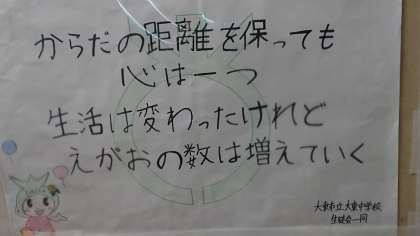 からだの距離を保っても
心は一つ
生活は変わったけれど
えがおの数は増えていく
大東市立大東中学校
生徒会一同